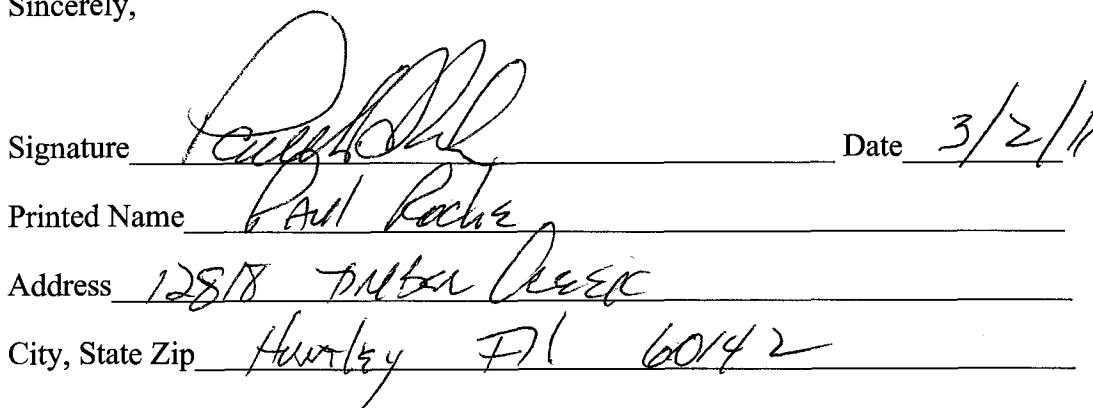 Sincerely,
Signature Date 3/2/11
Printed Name Paul Roche
Address 12818 Timber Creek
City, State Zip Huntley Il 60142